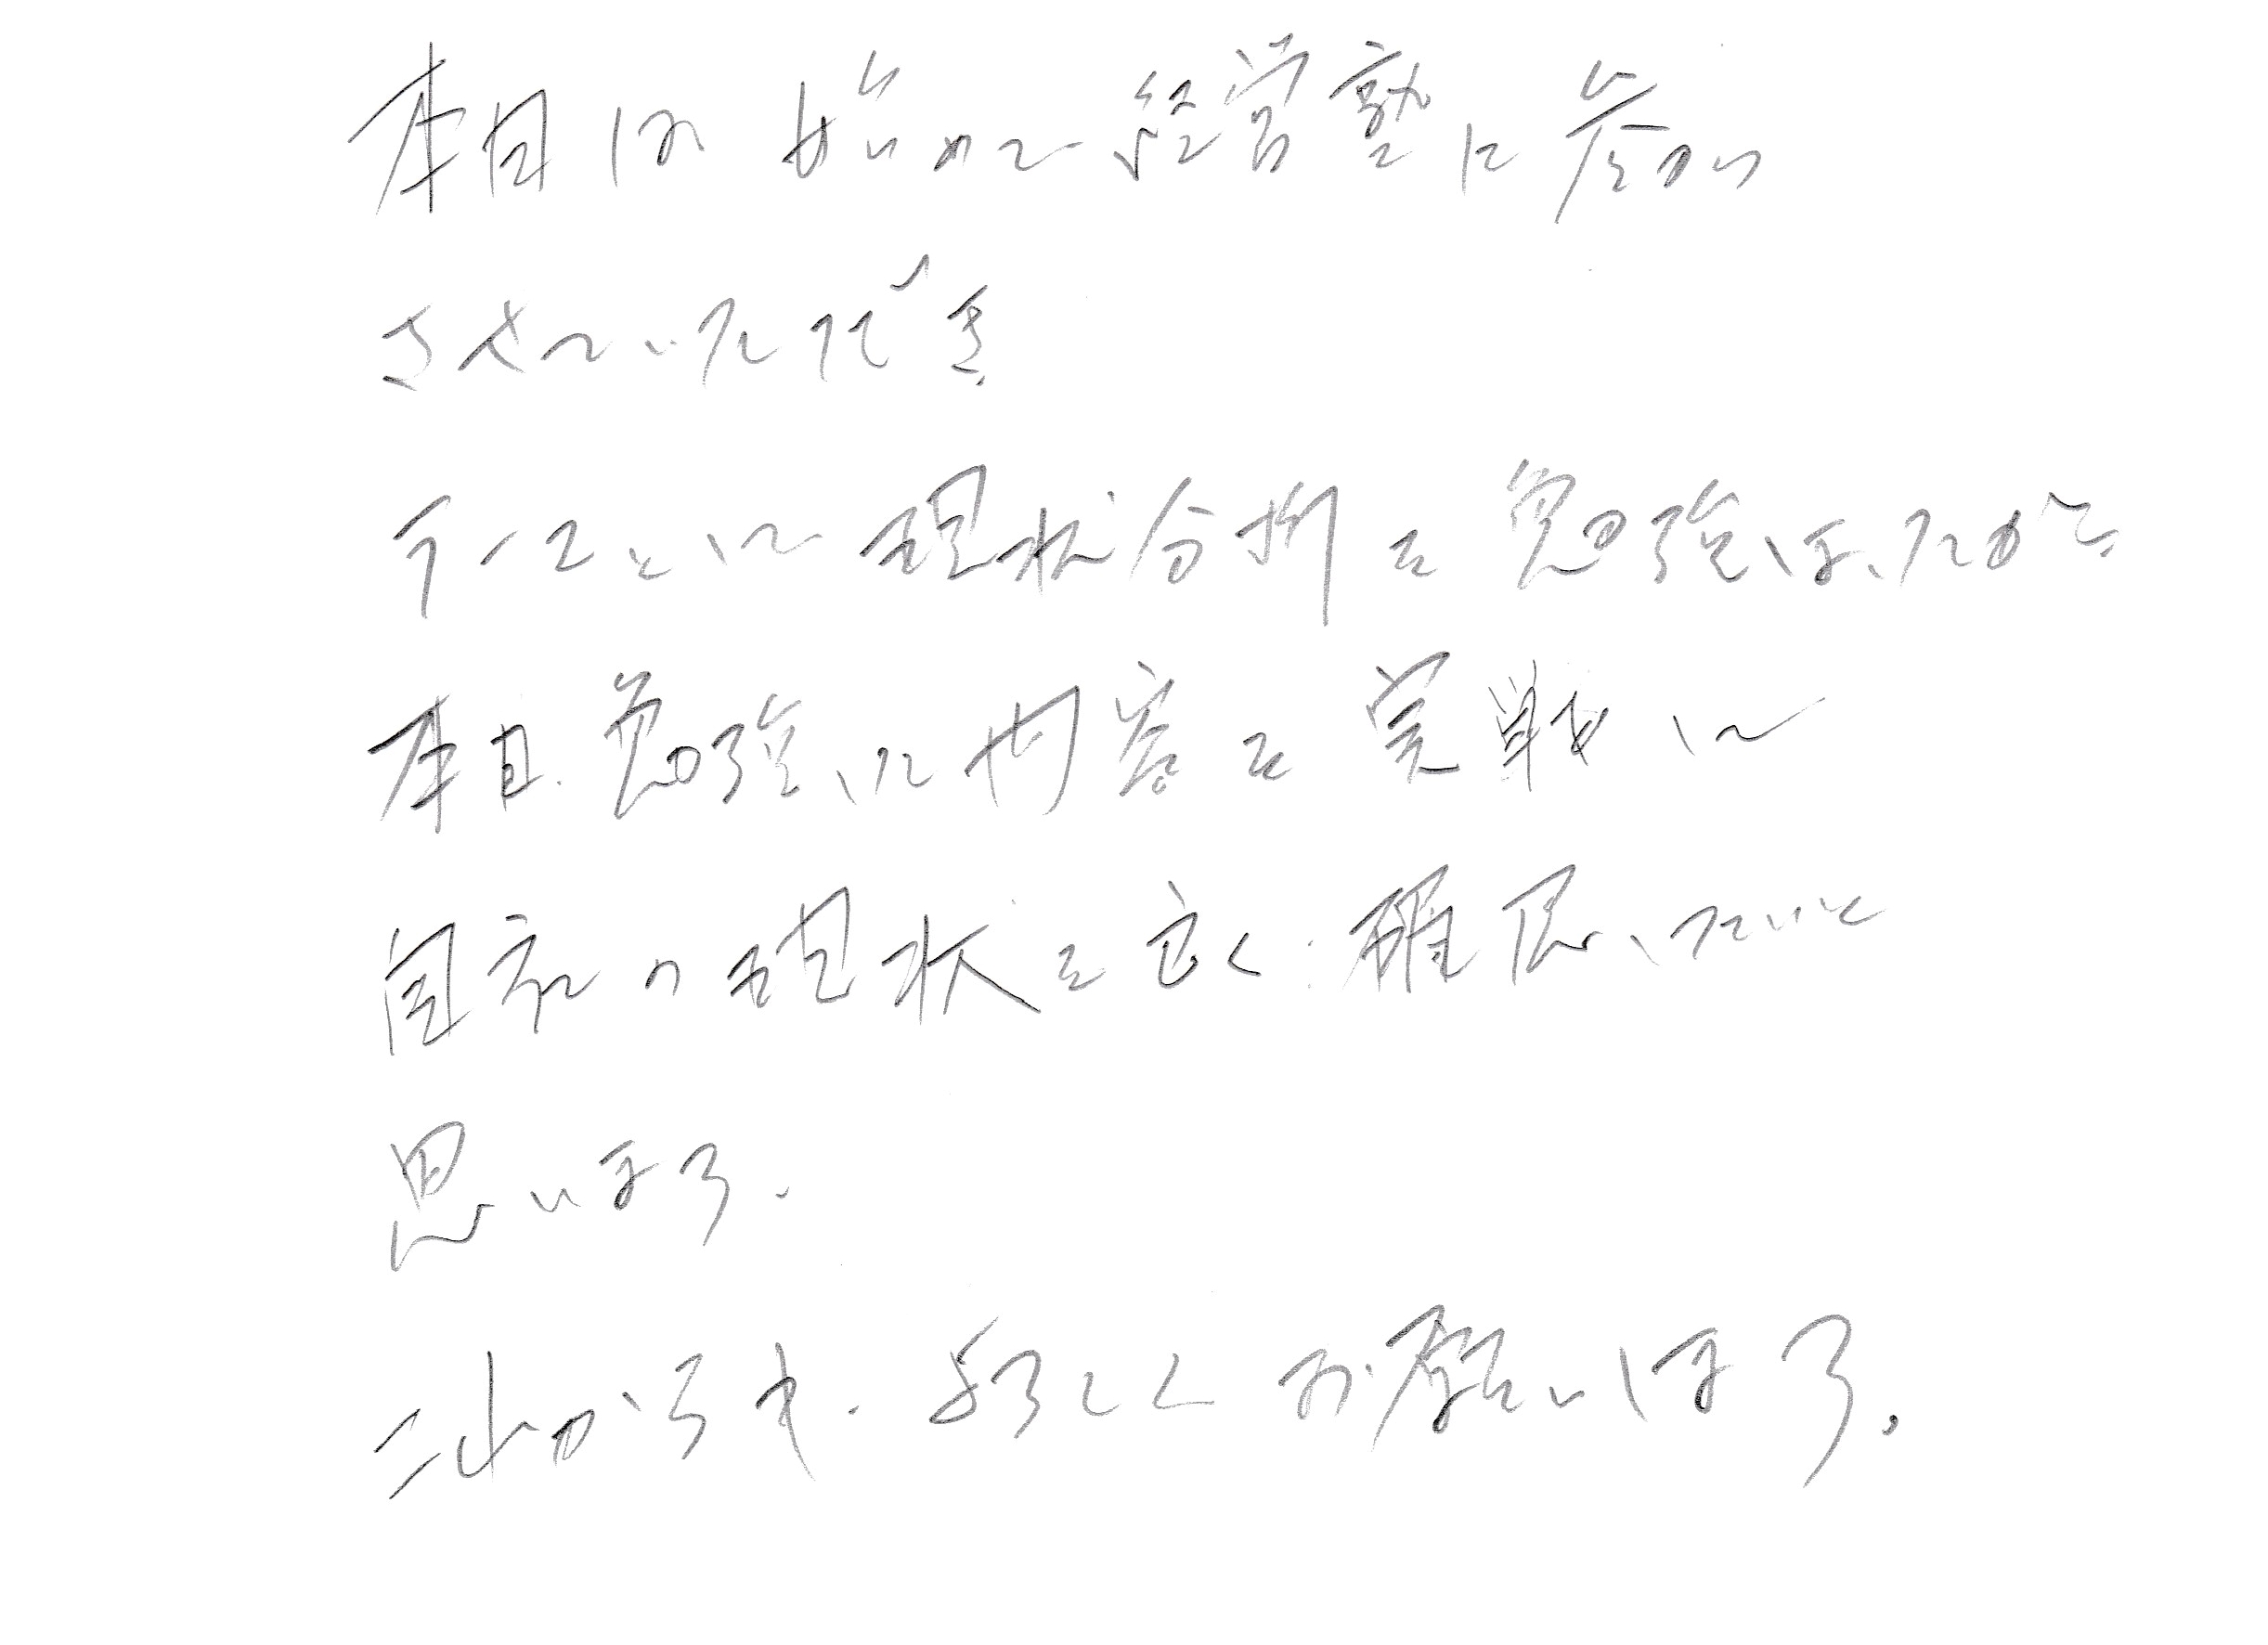 本日は始めて経営塾に参加
させていただき
テーマとして現状分析を勉強しましたがで
本日勉強した内容を実戦して
自社の現状を良く確認したいと
思います。
これからも、よろしくお願いします。